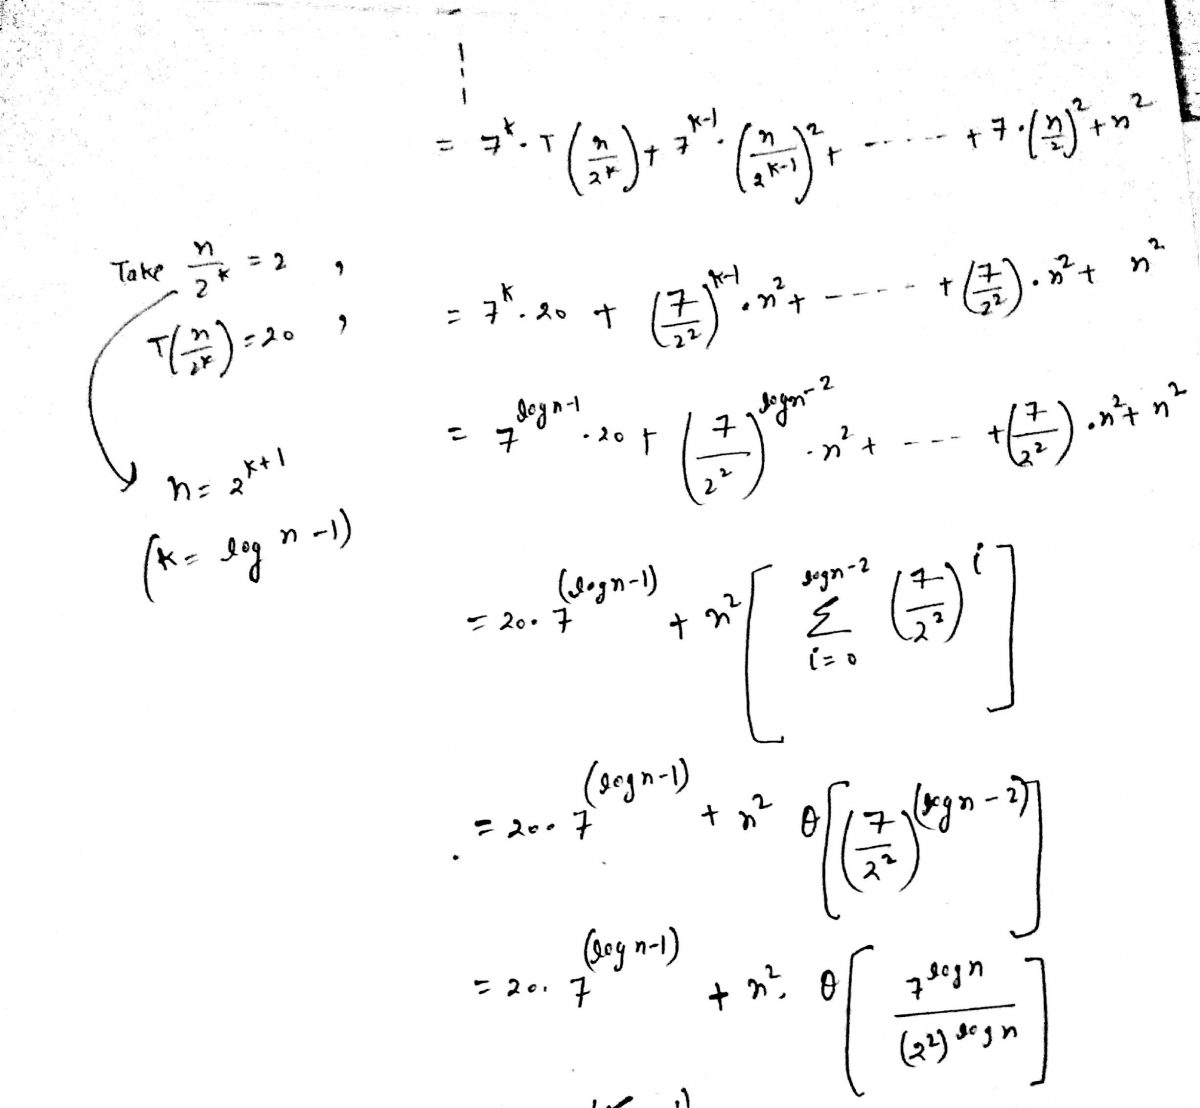 = 7^k . T(n/2^k) + 7^(k-1) . (n/2^(k-1))^2 + ------ + 7.(n/2)^2 + n^2
Take n/2^k = 2 ,
= 7^k . 20 + (7/2^2)^(k-1) . n^2 + ---- + (7/2^2) . n^2 + n^2
T(n/2^k) = 20 ,
= 7^(log n-1) . 20 + (7/2^2)^(log n-2) . n^2 + --- + (7/2^2) . n^2 + n^2
n = 2^(k+1)
(k = log n - 1)
= 20. 7^(log n-1) + n^2 [ Σ_(i=0)^(log n-2) (7/2^2)^i ]
= 20. 7^(log n-1) + n^2 θ[ (7/2^2)^(log n-2) ]
= 20. 7^(log n-1) + n^2. θ[ 7^(log n) / (2^2)^(log n) ]